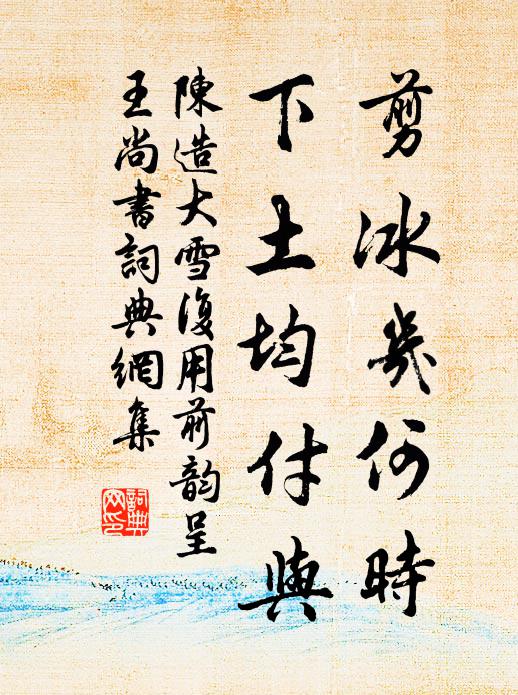 剪冰幾何時
下土均付與
陳造大雪復用前韵呈
王尚書詞典網集
詞典网印